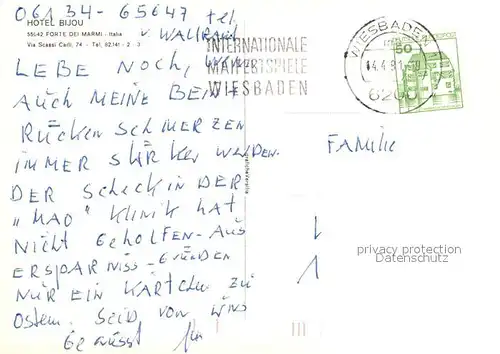 06134-65647 tel.
v. WALLRAU
HOTEL BIJOU
55042 FORTE DEI MARMI - Italia
Via Scassi Carli, 74 - Tel. 82.141 - 2 - 3
INTERNATIONALE
MAIFESTSPIELE
WIESBADEN
WIESBADEN
-4.4.81-18
6200
50
LEBE NOCH, WENN
AUCH MEINE BEIN +
RÜCKENSCHMERZEN
IMMER STÄRKER WERDEN.
DER SCHECK IN DER
„MAO" KLINIK HAT
NICHT GEHOLFEN - AUS
ERSPARNISS-GRÜNDEN
NUR EIN KÄRTCHEN ZU
Ostern. SEID VON UNS
GEGRÜSST
FAMILIE
privacy protection
Datenschutz